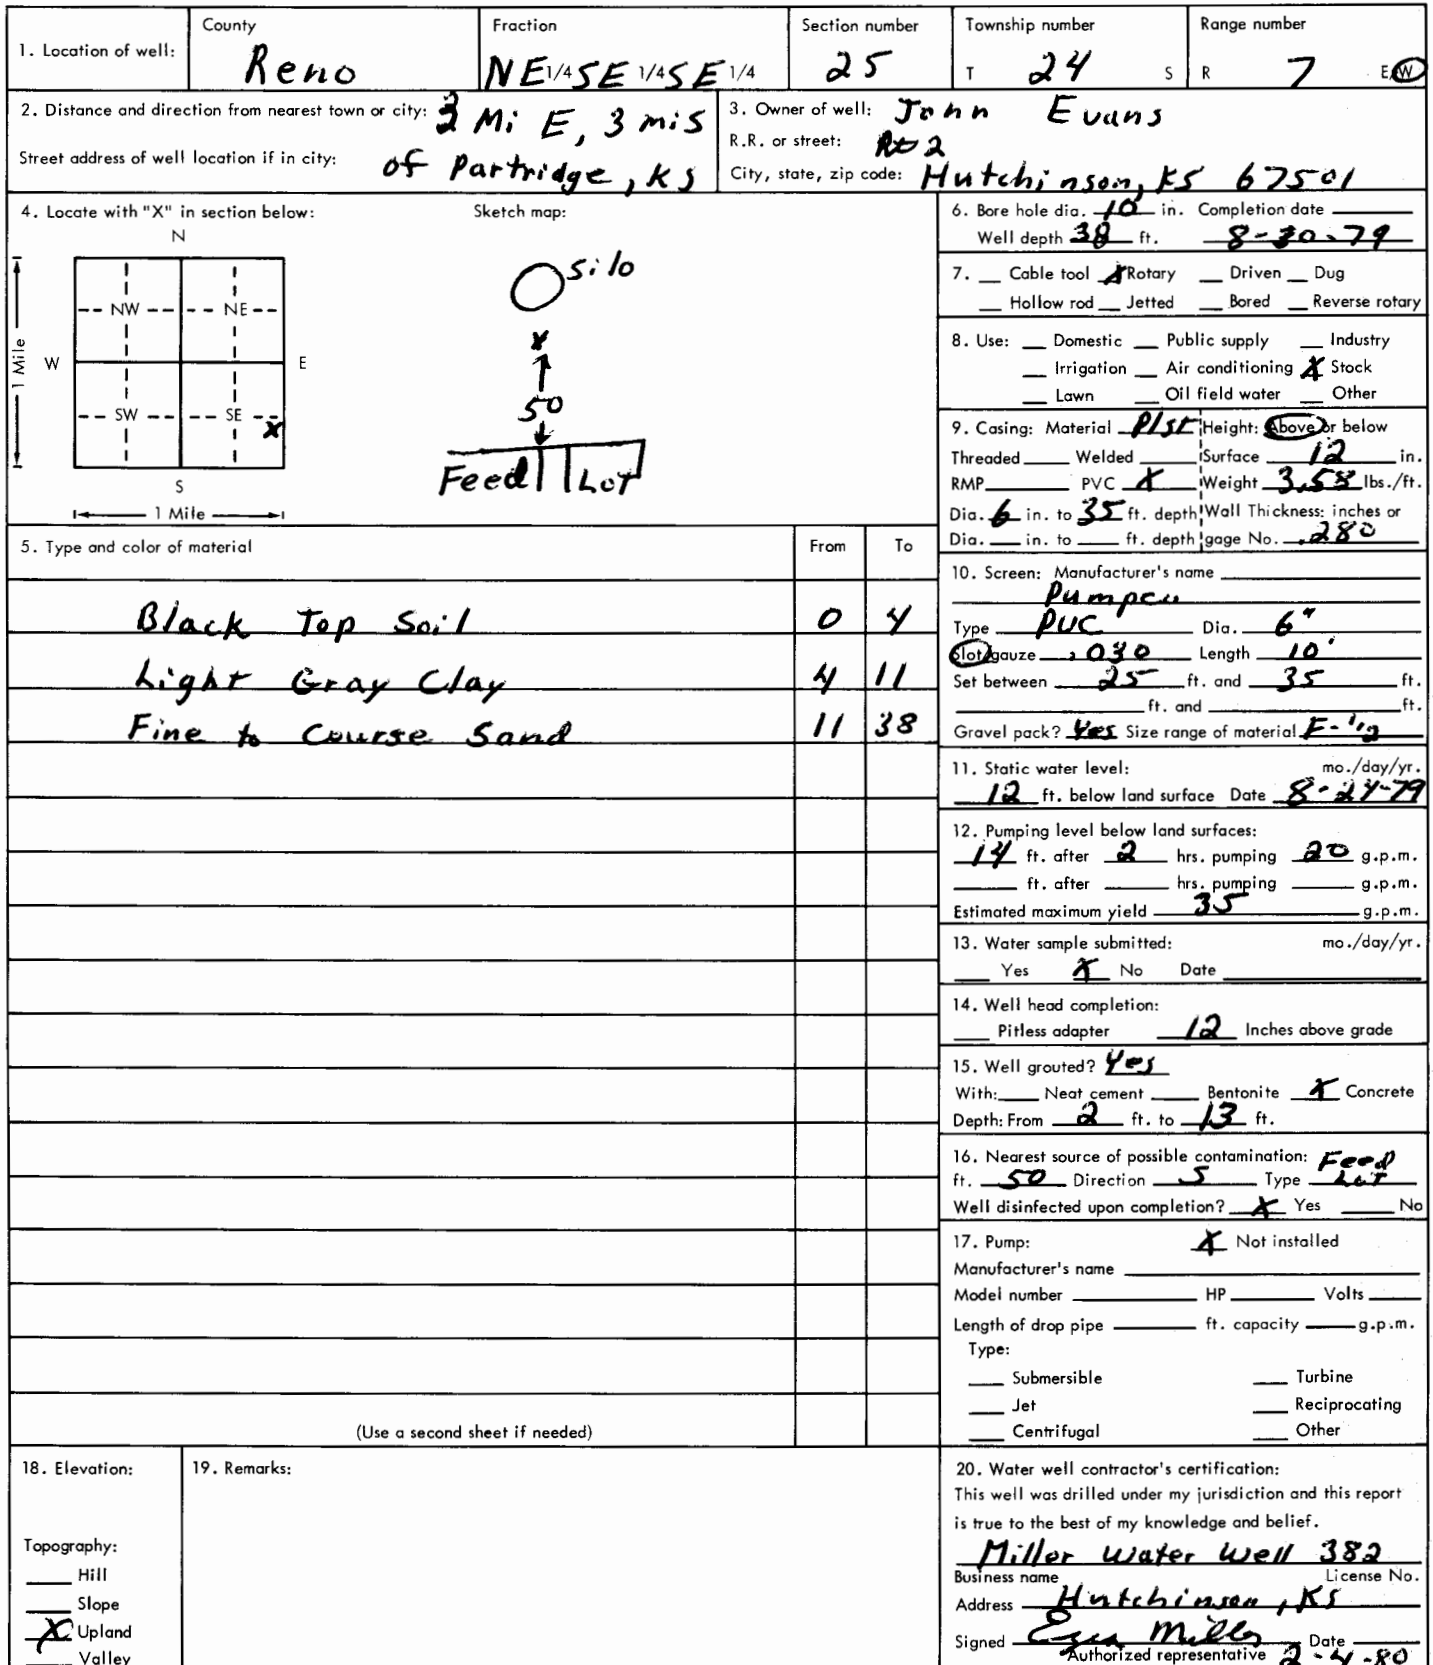 1. Location of well: County Reno Fraction NE 1/4 SE 1/4 SE 1/4 Section number 25 Township number T 24 S Range number R 7 E/W
2. Distance and direction from nearest town or city: 3 Mi E, 3 mi S
Street address of well location if in city: of Partridge, KS
3. Owner of well: John Evans
R.R. or street: Rt 2
City, state, zip code: Hutchinson, KS 67501
4. Locate with "X" in section below:
N
NW NE
W E
SW SE X
S
1 Mile
1 Mile
Sketch map:
silo
x
50
Feed Lot
5. Type and color of material From To
Black Top Soil 0 4
Light Gray Clay 4 11
Fine to Course Sand 11 38
(Use a second sheet if needed)
6. Bore hole dia. 10 in. Completion date
Well depth 38 ft. 8-30-79
7. Cable tool X Rotary Driven Dug
Hollow rod Jetted Bored Reverse rotary
8. Use: Domestic Public supply Industry
Irrigation Air conditioning X Stock
Lawn Oil field water Other
9. Casing: Material Plst Height: Above or below
Threaded Welded Surface 12 in.
RMP PVC X Weight 3.58 lbs./ft.
Dia. 6 in. to 35 ft. depth Wall Thickness: inches or
Dia. in. to ft. depth gage No. .280
10. Screen: Manufacturer's name
Pumpco
Type PVC Dia. 6"
Slot/gauze .030 Length 10'
Set between 25 ft. and 35 ft.
ft. and ft.
Gravel pack? Yes Size range of material F-1/2
11. Static water level: mo./day/yr.
12 ft. below land surface Date 8-24-79
12. Pumping level below land surfaces:
14 ft. after 2 hrs. pumping 20 g.p.m.
ft. after hrs. pumping g.p.m.
Estimated maximum yield 35 g.p.m.
13. Water sample submitted: mo./day/yr.
Yes X No Date
14. Well head completion:
Pitless adapter 12 Inches above grade
15. Well grouted? Yes
With: Neat cement Bentonite X Concrete
Depth: From 2 ft. to 13 ft.
16. Nearest source of possible contamination: Feed
ft. 50 Direction S Type Lot
Well disinfected upon completion? X Yes No
17. Pump: X Not installed
Manufacturer's name
Model number HP Volts
Length of drop pipe ft. capacity g.p.m.
Type:
Submersible Turbine
Jet Reciprocating
Centrifugal Other
18. Elevation:
Topography:
Hill
Slope
X Upland
Valley
19. Remarks:
20. Water well contractor's certification:
This well was drilled under my jurisdiction and this report
is true to the best of my knowledge and belief.
Miller Water Well 382
Business name License No.
Address Hutchinson, KS
Signed Miller Date
Authorized representative 2-4-80